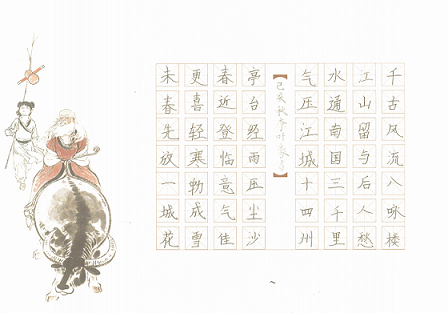 千古风流八咏楼
江山留与后人愁
水通南国三千里
气压江城十四州
己亥秋
亭台经雨压尘沙
春近登临意气佳
更喜轻寒物成雪
未春先放一城花